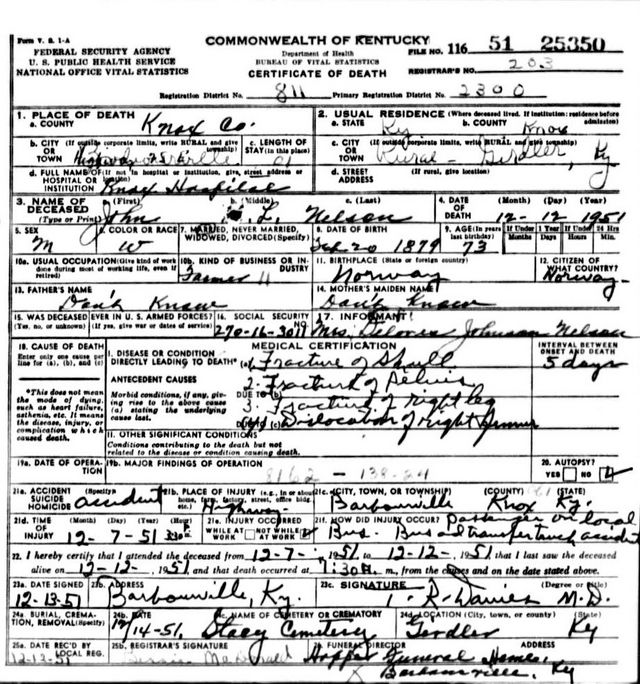 Form V. S. 1-A
FEDERAL SECURITY AGENCY
U. S. PUBLIC HEALTH SERVICE
NATIONAL OFFICE VITAL STATISTICS
COMMONWEALTH OF KENTUCKY
Department of Health
BUREAU OF VITAL STATISTICS
CERTIFICATE OF DEATH
FILE NO. 116 51 25350
REGISTRAR'S NO. 203
Registration District No. 811 Primary Registration District No. 2300
1. PLACE OF DEATH
a. COUNTY Knox Co.
2. USUAL RESIDENCE (Where deceased lived. If institution: residence before admission)
a. STATE Ky b. COUNTY Knox
b. CITY (If outside corporate limits, write RURAL and give township) OR TOWN
c. LENGTH OF STAY (in this place)
c. CITY (If outside corporate limits, write RURAL and give township) OR TOWN Rural - Girdler, Ky
d. FULL NAME OF (If not in hospital or institution, give street address or location) HOSPITAL OR INSTITUTION Knox Hospital
d. STREET ADDRESS (If rural, give location)
3. NAME OF DECEASED (Type or Print) a. (First) John b. (Middle) L. c. (Last) Nelson
4. DATE OF DEATH (Month) (Day) (Year) 12-12-1951
5. SEX M
6. COLOR OR RACE W
7. MARRIED, NEVER MARRIED, WIDOWED, DIVORCED (Specify)
8. DATE OF BIRTH Feb 20 1879
9. AGE (In years last birthday) 73 If Under 1 Year Months Days If Under 24 Hrs Hours Min.
10a. USUAL OCCUPATION (Give kind of work done during most of working life, even if retired)
10b. KIND OF BUSINESS OR INDUSTRY
Farmer
11. BIRTHPLACE (State or foreign country) Norway
12. CITIZEN OF WHAT COUNTRY? Norway
13. FATHER'S NAME Don't Know
14. MOTHER'S MAIDEN NAME Don't Know
15. WAS DECEASED EVER IN U. S. ARMED FORCES? (Yes, no, or unknown) (If yes, give war or dates of service)
16. SOCIAL SECURITY 270-16-3079
17. INFORMANT Mrs. Delores Johnson Nelson
18. CAUSE OF DEATH
Enter only one cause per line for (a), (b), and (c)
MEDICAL CERTIFICATION
INTERVAL BETWEEN ONSET AND DEATH
5 days
I. DISEASE OR CONDITION DIRECTLY LEADING TO DEATH* (a) 1. Fracture of Skull
*This does not mean the mode of dying, such as heart failure, asthenia, etc. It means the disease, injury, or complication which caused death.
ANTECEDENT CAUSES
Morbid conditions, if any, giving rise to the above cause (a) stating the underlying cause last.
2. Fracture of Pelvis
DUE TO (b)
3. Fracture of right leg
DUE TO (c) Dislocation of right femur
II. OTHER SIGNIFICANT CONDITIONS
Conditions contributing to the death but not related to the disease or condition causing death.
19a. DATE OF OPERATION
19b. MAJOR FINDINGS OF OPERATION
8162 - 138-24
20. AUTOPSY? YES NO
21a. ACCIDENT SUICIDE HOMICIDE (Specify) accident
21b. PLACE OF INJURY (e.g., in or about home, farm, factory, street, office bldg. etc.) Highway
21c. (CITY, TOWN, OR TOWNSHIP) (COUNTY) (STATE) Barbourville Knox Ky.
21d. TIME OF INJURY (Month) (Day) (Year) (Hour) 12-7-51
21e. INJURY OCCURRED WHILE AT WORK NOT WHILE AT WORK
21f. HOW DID INJURY OCCUR? Passenger on local Bus. Bus and transfer truck accident
22. I hereby certify that I attended the deceased from 12-7-, 1951 to 12-12-, 1951, that I last saw the deceased
alive on 12-12-, 1951 and that death occurred at 7:30 m., from the causes and on the date stated above.
23a. DATE SIGNED 12-13-51
23b. ADDRESS Barbourville, Ky.
23c. SIGNATURE (Degree or title) T-R-Davies M.D.
24a. BURIAL, CREMATION, REMOVAL (Specify)
24b. DATE 12/14-51
24c. NAME OF CEMETERY OR CREMATORY Stacy Cemetery
24d. LOCATION (City, town, or county) (State) Girdler Ky
25a. DATE REC'D BY LOCAL REG. 12-13-51
25b. REGISTRAR'S SIGNATURE
FUNERAL DIRECTOR ADDRESS
Hopper Funeral Home,
Barbourville, Ky